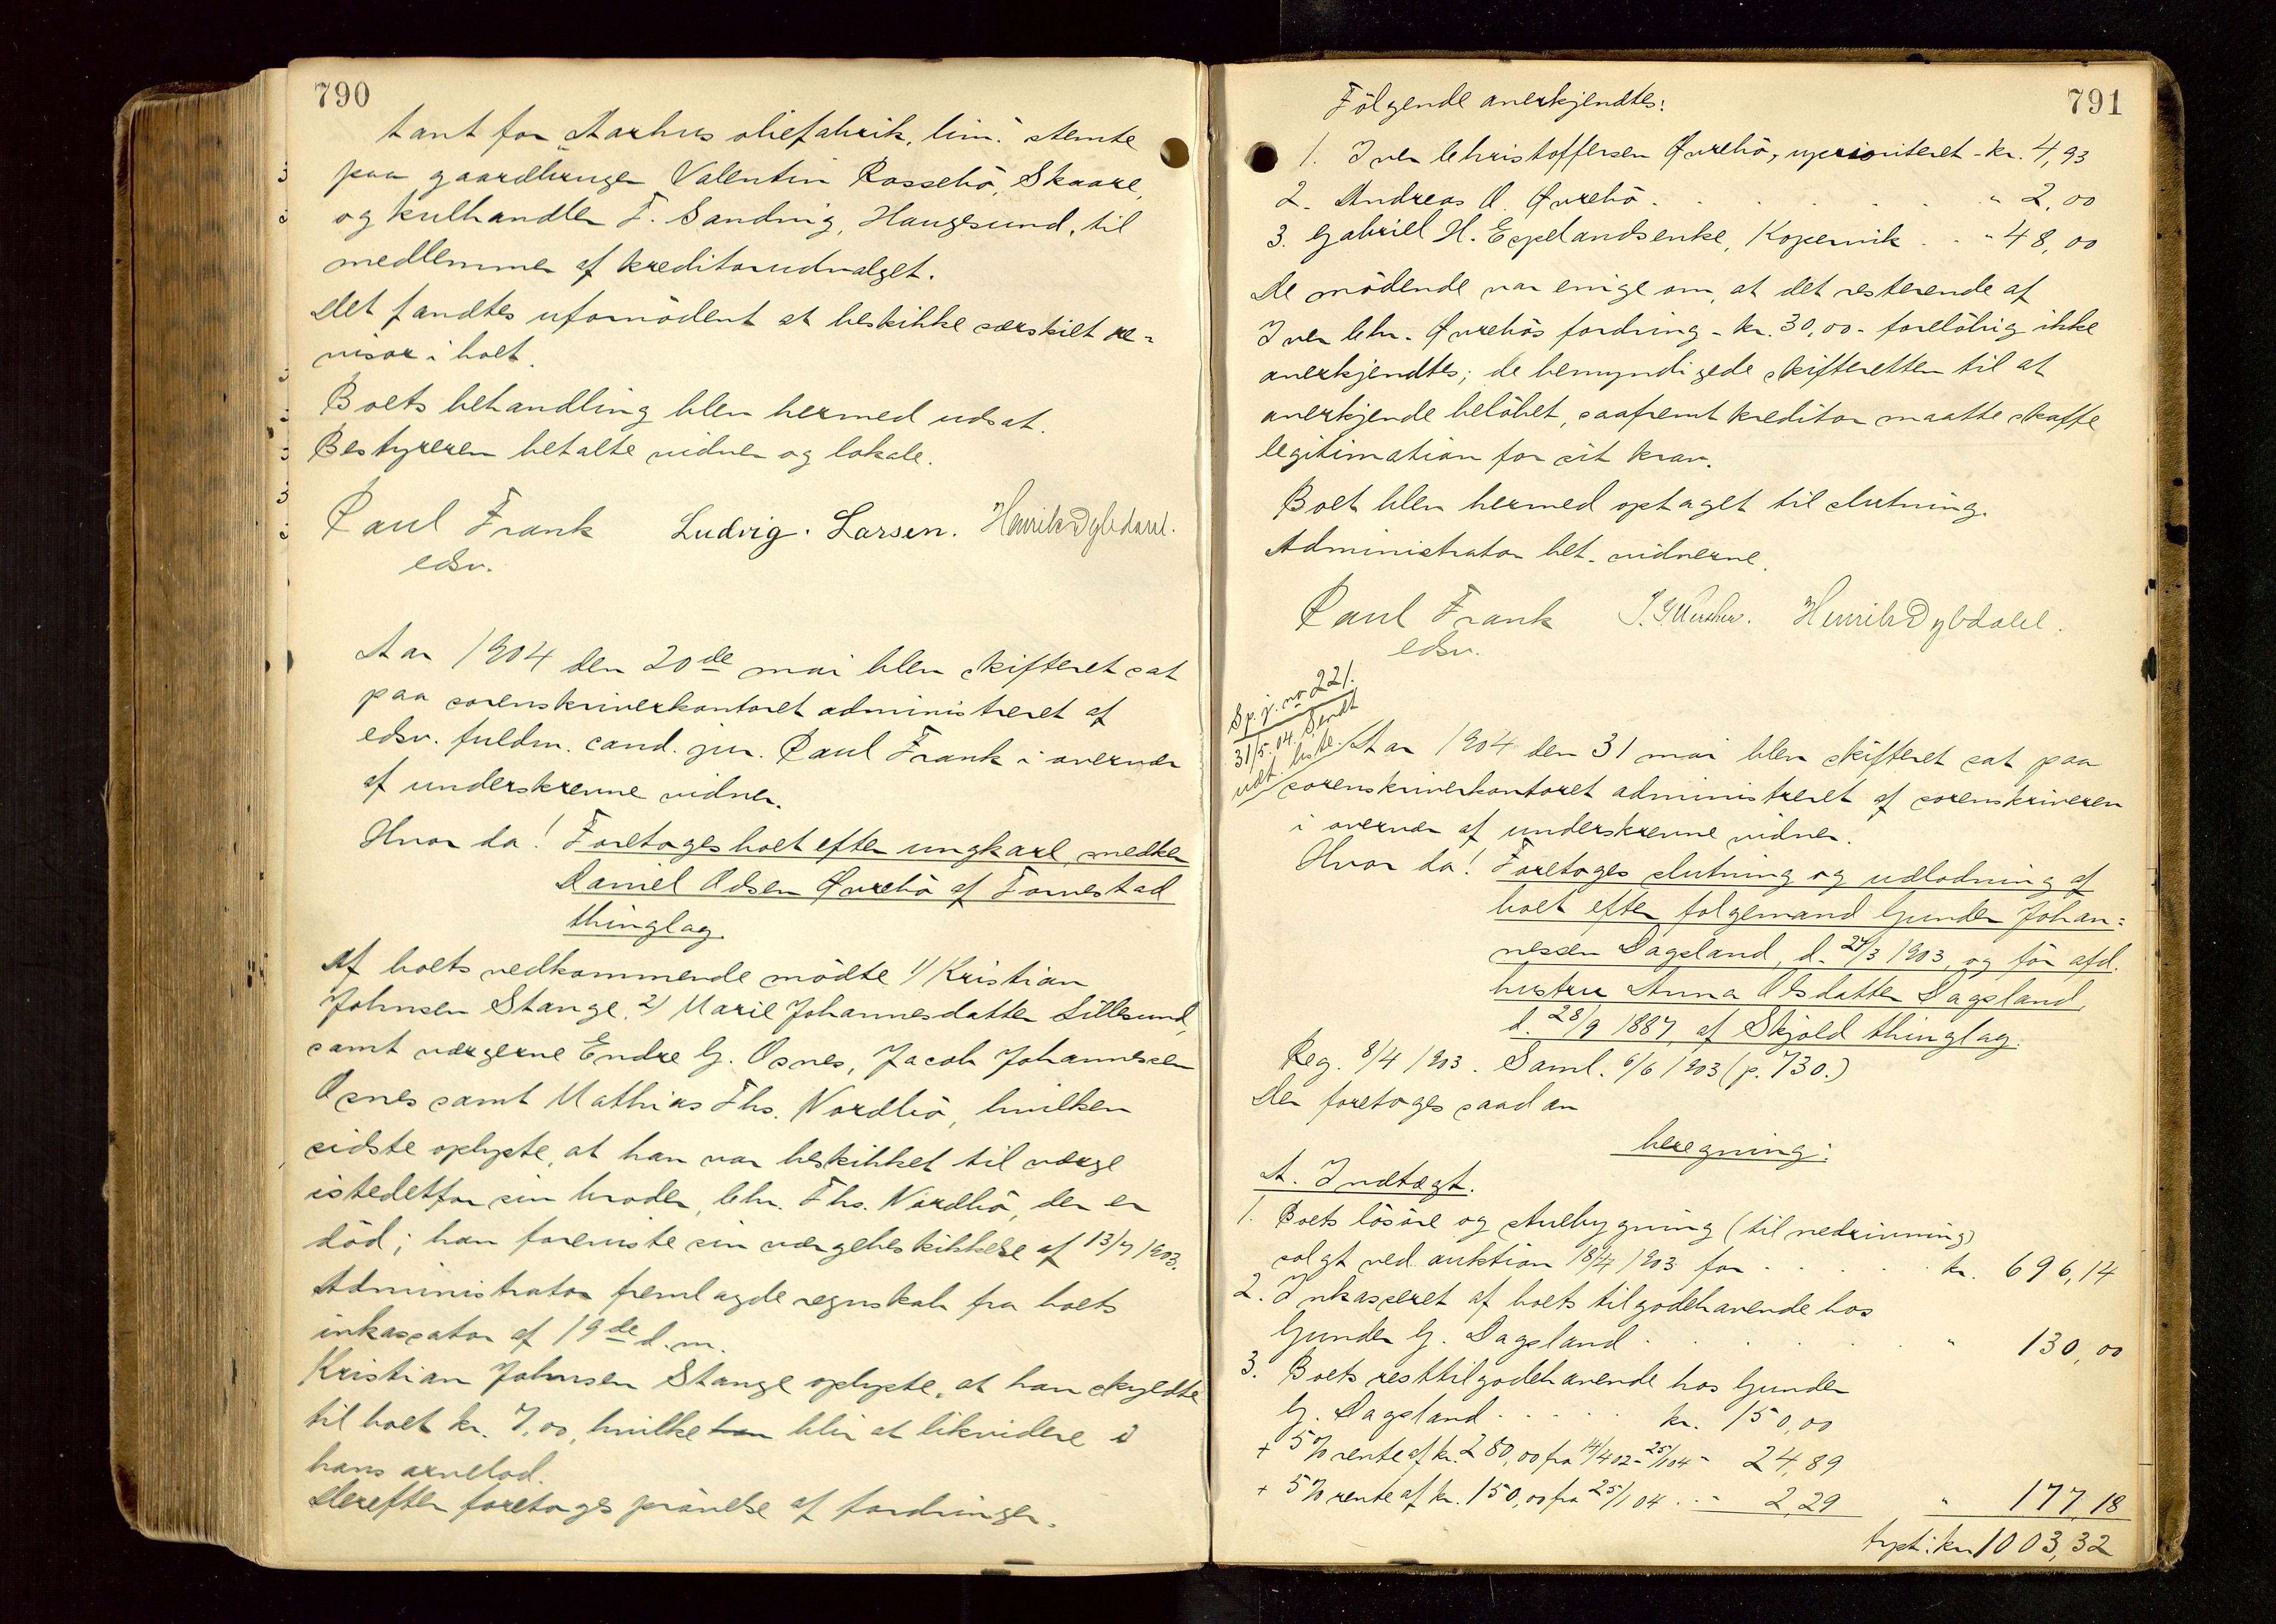 790
tant for „Aarhus oliefabrik, lim." stemte
paa gaardbruger Valentin Rossebö, Skaare,
og kulhandler F. Sandvig, Haugesund, til
medlemmer af kreditorudvalget.
Det fandtes ufornödent at beskikke særskilt re=
visor i boet.
Boets behandling blev hermed udsat.
Bestyreren betalte vidner og lokale.
Paul Frank Ludvig. Larsen. Henrik Dybdahl.
edsv.
Aar 1904 den 20de mai blev skifteret sat
paa sorenskriverkontoret administreret af
edsv. fuldm. cand. jur. Paul Frank i overvær
af underskrevne vidner.
Hvor da! Foretoges boet efter ungkarl, snedker
Daniel Olsen Øvrebö af Tornestad
thinglag.
Af boets vedkommende mödte 1) Kristian
Johnsen Stange, 2) Marie Johannesdatter Lillesund,
samt værgerne Endre G. Osnes, Jacob Johannesen
Osnes samt Mathias Ths. Nordbö, hvilken
sidste oplyste, at han var beskikket til værge
istedetfor sin broder, Chr. Ths. Nordbö, der er
död; han foreviste sin værgebeskikkelse af 13/7 1903.
Administrator fremlagde regnskab fra boets
inkassator af 19de d.m.
Kristian Johnsen Stange oplyste, at han skyldte
til boet kr. 7,00, hvilke han blir at likvidere i
hans arvelod.
Derefter foretoges prövelse af fordringer.
791
Fölgende anerkjendtes:
1. Iver Christoffersen Øvrebö, uprioriteret - kr. 4,93
2. Andreas O. Øvrebö . . . . . . . " 2,00
3. Gabriel H. Espelandsenke, Kopervik . . " 48,00
De mödende var enige om, at det resterende af
Iver Chr. Øvrebös fordring - kr. 30,00 - forelöbig ikke
anerkjendtes; de bemyndigede skifteretten til at
anerkjende belöbet, saafremt kreditor maatte skaffe
legitimation for sit krav.
Boet blev hermed optaget til slutning.
Administrator bet. vidnerne.
Paul Frank Henrik Dybdahl.
edsv.
Sp. j. no 221.
31/5. 04. Sendt
udt. liste.
Aar 1904 den 31 mai blev skifteret sat paa
sorenskriverkontoret administreret af sorenskriveren
i overvær af underskrevne vidner.
Hvor da! Foretoges slutning og udlodning af
boet efter folgemand Gunder Johan=
nessen Dagsland, d. 27/3 1903, og för afd.
hustru Anna Olsdatter Dagsland,
d. 28/9 1887, af Skjold thinglag.
Reg. 8/4 1903. Saml. 6/6 1903 (p. 730.)
Der foretoges saadan
beregning:
A. Indtægt.
1. Boets lösöre og stuebygning (til nedrivning)
solgt ved auktion 18/4 1903 for . . . . . kr. 696,14
2. Inkasseret af boets tilgodehavende hos
Gunder G. Dagsland . . . . . . " 130,00
3. Boets resttilgodehavende hos Gunder
G. Dagsland . . . . . kr. 150,00
+ 5% rente af kr. 280,00 fra 14/4 02 - 25/1 04 - 24,89
+ 5% rente af kr. 150,00 fra 25/1 04 . . - 2,29 " 177,18
tvpt: kr 1003,32